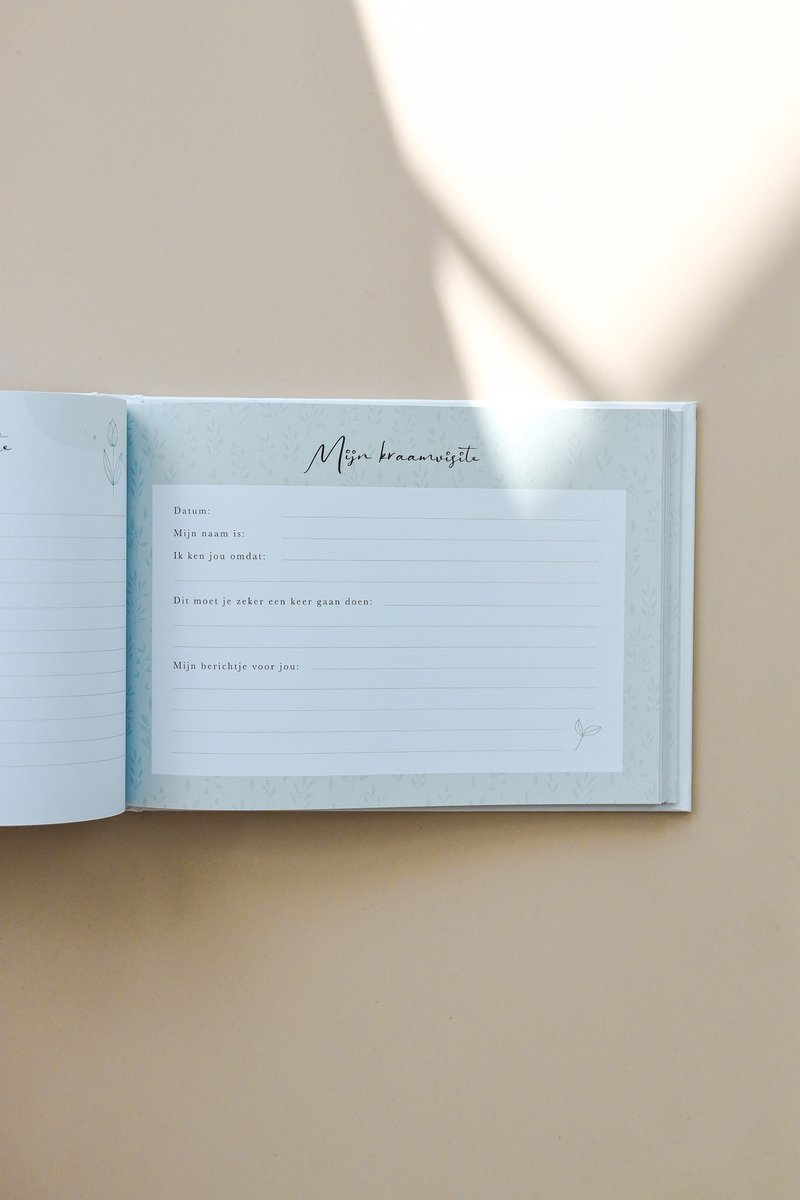 Mijn kraamvisite
Datum:
Mijn naam is:
Ik ken jou omdat:
Dit moet je zeker een keer gaan doen:
Mijn berichtje voor jou: